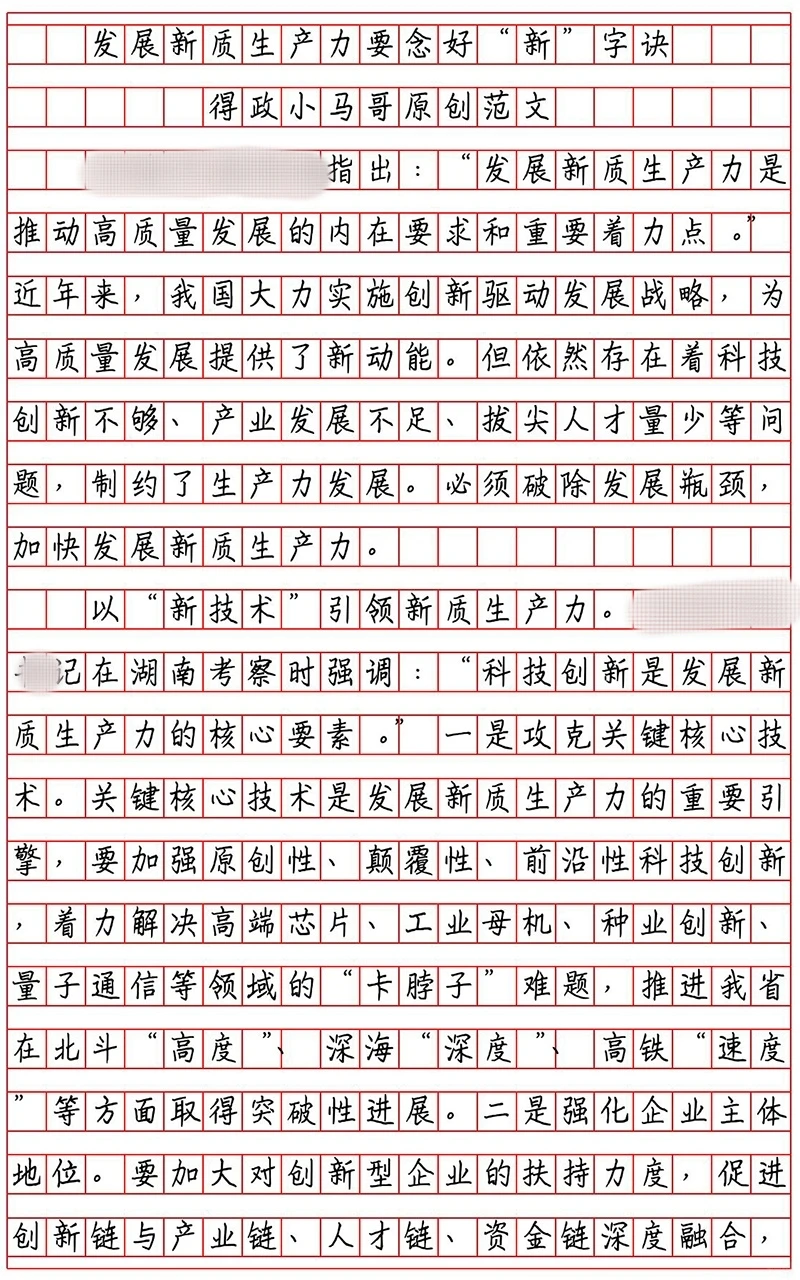 发展新质生产力要念好“新”字诀
得政小马哥原创范文
指出：“发展新质生产力是
推动高质量发展的内在要求和重要着力点。”
近年来，我国大力实施创新驱动发展战略，为
高质量发展提供了新动能。但依然存在着科技
创新不够、产业发展不足、拔尖人才量少等问
题，制约了生产力发展。必须破除发展瓶颈，
加快发展新质生产力。
以“新技术”引领新质生产力。
记在湖南考察时强调：“科技创新是发展新
质生产力的核心要素。”一是攻克关键核心技
术。关键核心技术是发展新质生产力的重要引
擎，要加强原创性、颠覆性、前沿性科技创新
，着力解决高端芯片、工业母机、种业创新、
量子通信等领域的“卡脖子”难题，推进我省
在北斗“高度”、深海“深度”、高铁“速度
”等方面取得突破性进展。二是强化企业主体
地位。要加大对创新型企业的扶持力度，促进
创新链与产业链、人才链、资金链深度融合，